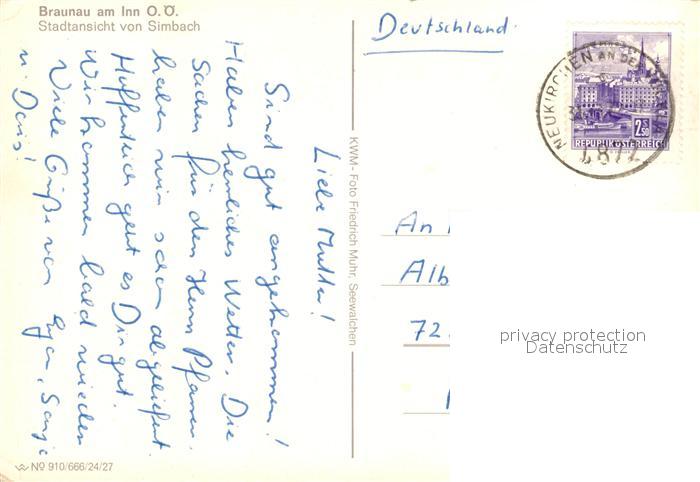 Braunau am Inn O.Ö.
Stadtansicht von Simbach
Liebe Mutter!
Sind gut angekommen!
Haben herrliches Wetter. Die
Sachen für den Herrn Pfarrer
haben wir schon abgeliefert.
Hoffentlich geht es Dir gut.
Wir kommen bald wieder
Viele Grüße von
u. Doris!
WV Nº 910/666/24/27
KWM - Foto Friedrich Muhr, Seewalchen
Deutschland
NEUKIRCHEN AN DER
2 S 50
REPUBLIK ÖSTERREICH
An
Alb
72
privacy protection
Datenschutz